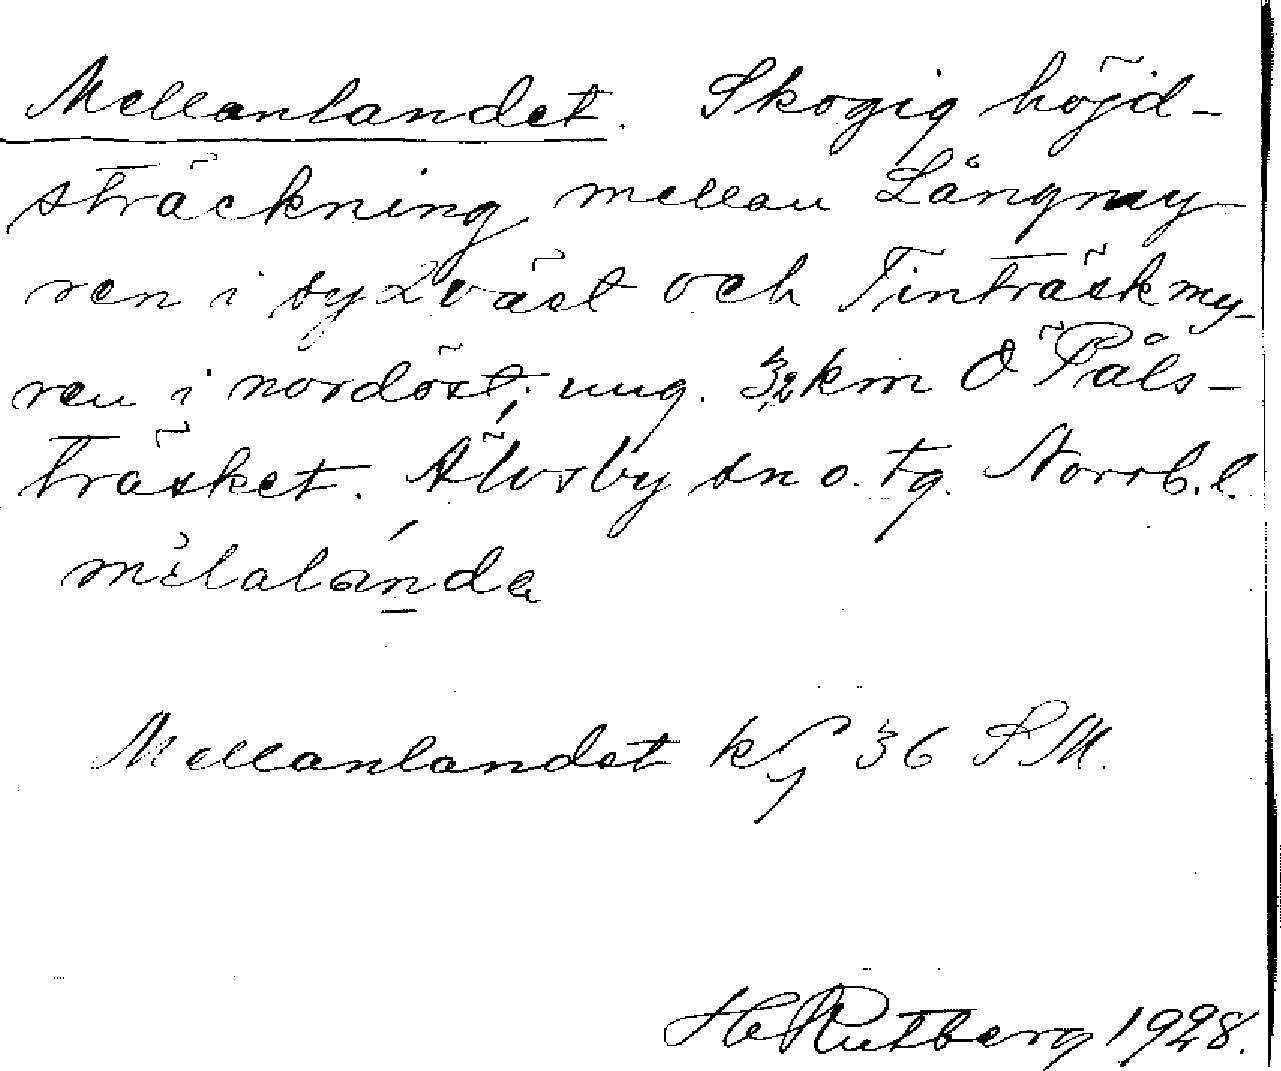 Mellanlandet. Skogig höjd-
sträckning mellan Långmy-
ren i sydväst och Tinträskmy-
ren i nordöst; ung. 3 km Ö Påls-
träsket. Älvsby sn o. tg. Norrb. l.
Mellanlandet 36 SM.
Rutberg 1928.